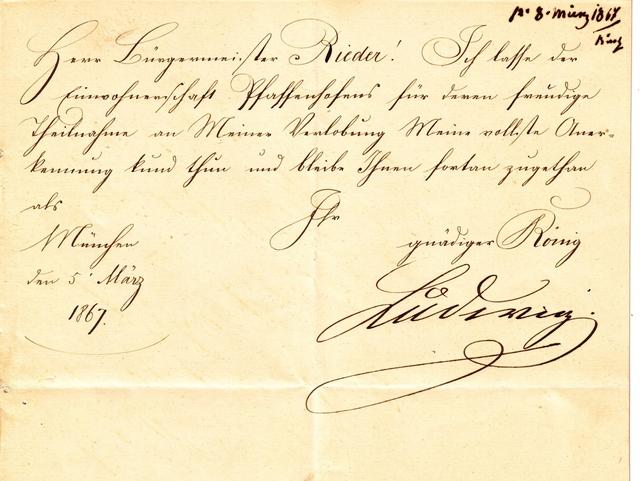 pr. 8. März 1867
Herr Bürgermeister Rieder! Ich lasse der
Einwohnerschaft Pfaffenhofens für deren freudige
Theilnahme an Meiner Verlobung Meine vollste Aner-
kennung kund thun und bleibe Ihnen fortan zugethan
als
Ihr
München
gnädiger König
den 5. März
1867.
Ludwig.